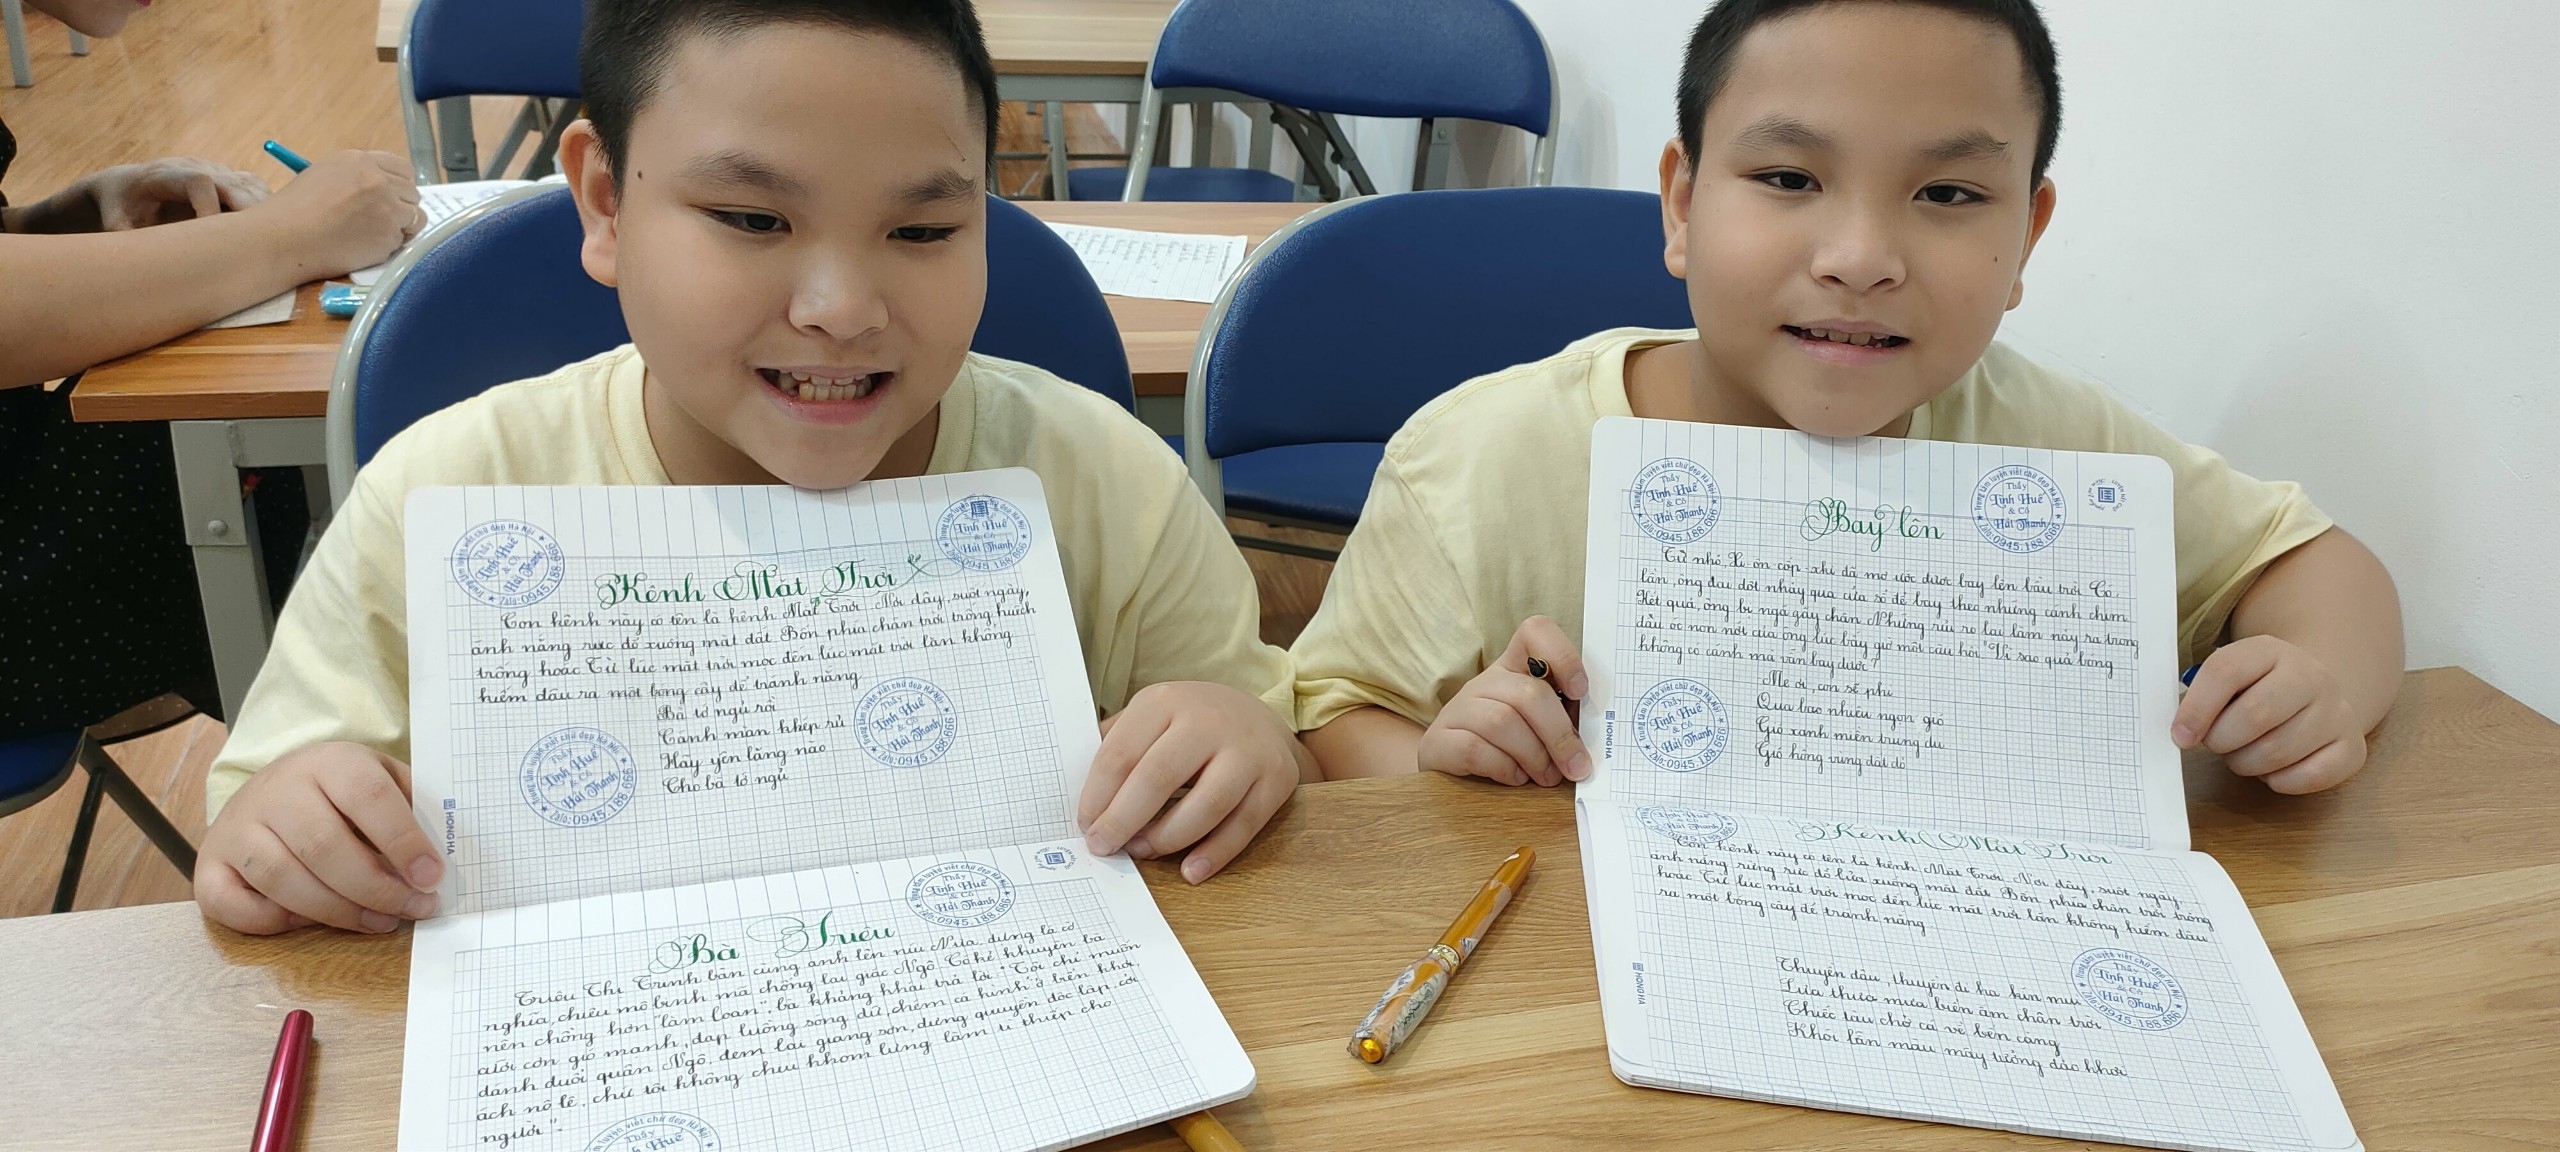 Trung tâm luyện viết chữ đẹp Hà Nội
Thầy
Tình Huế
& Cô
Hải Thanh
Zalo: 0945.188.666
Kênh Mặt Trời
Con kênh này có tên là kênh Mặt Trời. Nơi đây, suốt ngày,
ánh nắng rực đổ xuống mặt đất. Bốn phía chân trời trống huếch
trống hoác. Từ lúc mặt trời mọc đến lúc mặt trời lặn không
hiếm đâu ra một bóng cây để tránh nắng
Bà tớ ngủ rồi
Cánh màn khép rủ
Hãy yên lặng nào
Cho bà tớ ngủ
HONG HA
Bà Triệu
Triệu Thị Trinh bàn cùng anh lên núi Nưa dựng lá cờ
nghĩa, chiêu mộ binh mã chống lại giặc Ngô. Có kẻ khuyên bà
nên chồng hơn "làm loạn", bà khảng khái trả lời: "Tôi chỉ muốn
cưỡi cơn gió mạnh, đạp luồng sóng dữ, chém cá kình ở biển khơi,
đánh đuổi quân Ngô, đem lại giang sơn, dựng quyền độc lập, cởi
ách nô lệ, chứ tôi không chịu khom lưng làm tì thiếp cho
người".
Bay lên
Từ nhỏ, Xi-ôn-cốp-xki đã mơ ước được bay lên bầu trời. Có
lần, ông dại dột nhảy qua cửa sổ để bay theo những cánh chim.
Kết quả, ông bị ngã gãy chân. Nhưng rủi ro lại làm nảy ra trong
đầu óc non nớt của ông lúc bấy giờ một câu hỏi: "Vì sao quả bóng
không có cánh mà vẫn bay được?
Mẹ ơi, con sẽ phi
Qua bao nhiêu ngọn gió
Gió xanh miền trung du
Gió hồng vùng đất đỏ
HONG HA
Kênh Mặt Trời
Con kênh này có tên là kênh Mặt Trời. Nơi đây, suốt ngày,
ánh nắng rừng rực đổ lửa xuống mặt đất. Bốn phía chân trời trống
hoác. Từ lúc mặt trời mọc đến lúc mặt trời lặn không hiếm đâu
ra một bóng cây để tránh nắng
Thuyền đâu, thuyền đi ha hún mui
Lưa thưa mưa biển ấm chân trời
Chiếc tàu chở cá về bến cảng
Khói lẫn màu mây tưởng đảo khơi
HONG HA